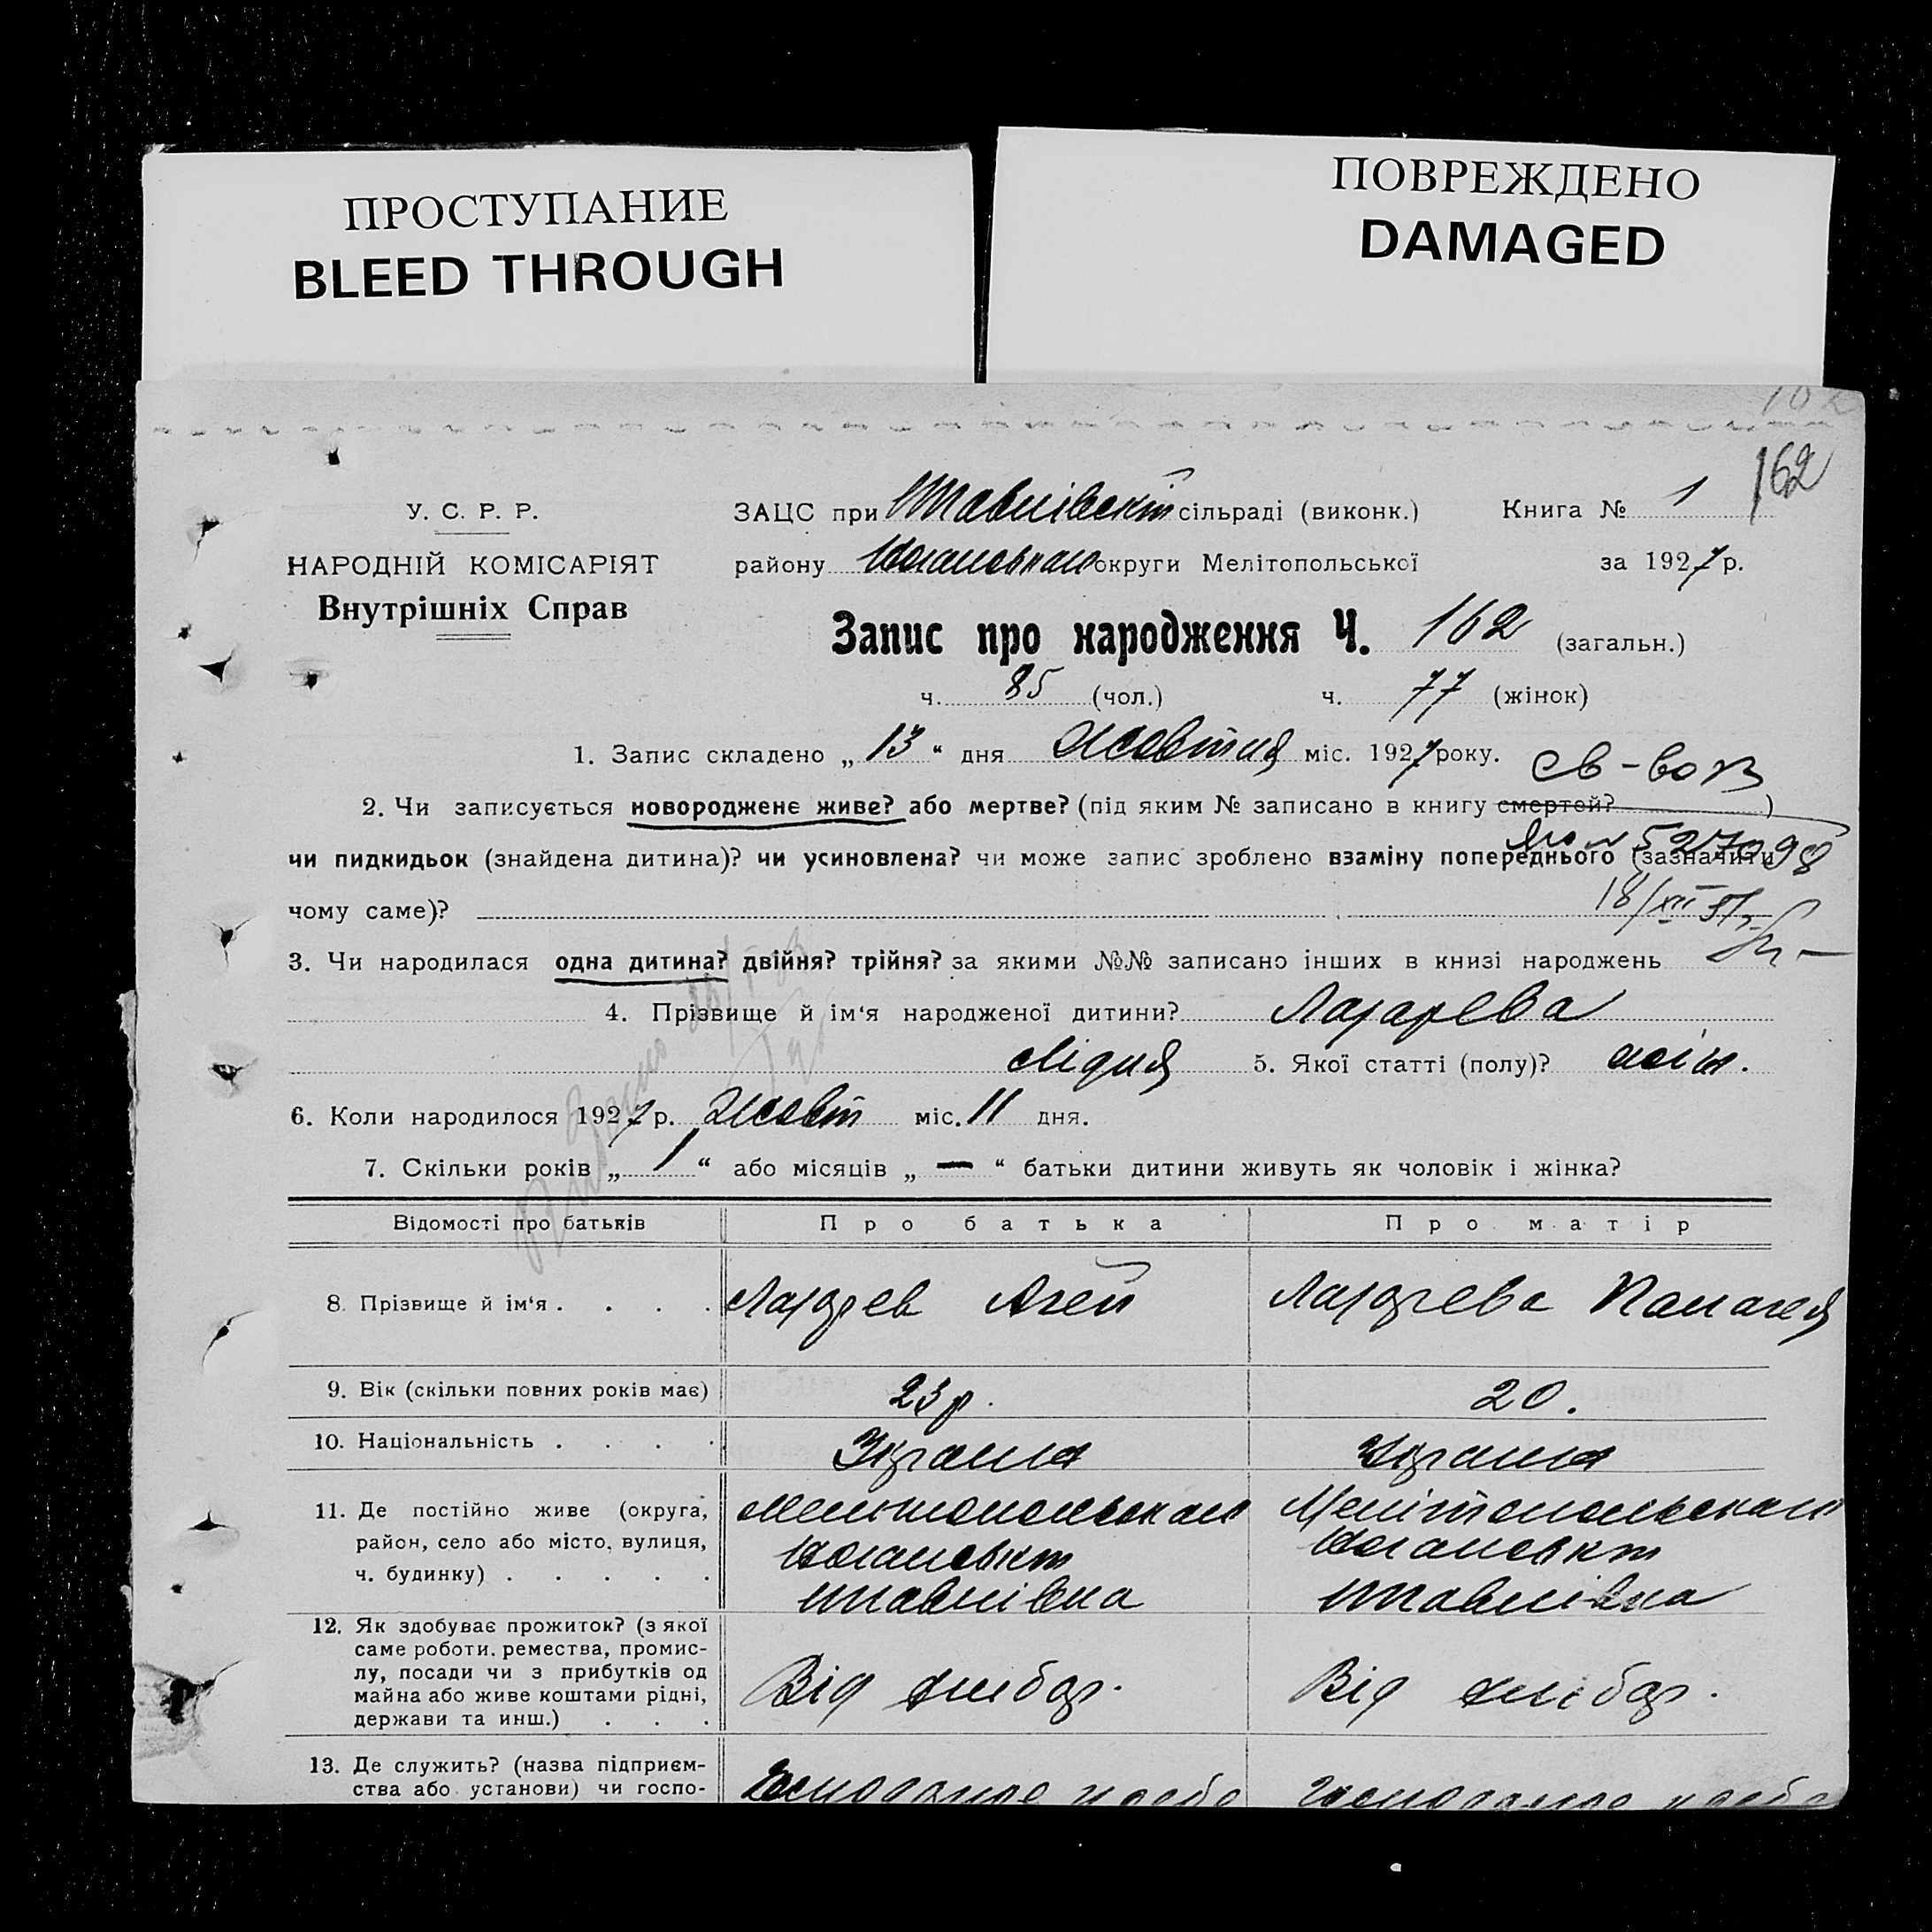 ПРОСТУПАНИЕ
BLEED THROUGH
ПОВРЕЖДЕНО
DAMAGED
162
У. С. Р. Р.
НАРОДНІЙ КОМІСАРІЯТ
Внутрішніх Справ
ЗАЦС при сільраді (виконк.) Книга № 1
району округи Мелітопольської за 1927 р.
Запис про народження Ч. 162 (загальн.)
ч. 85 (чол.) ч. 77 (жінок)
1. Запис складено „ 13 “ дня Жовтня міс. 1927 року.
св-во
2. Чи записується новороджене живе? або мертве? (під яким № записано в книгу смертей? )
527098
чи пидкидьок (знайдена дитина)? чи усиновлена? чи може запис зроблено взаміну попереднього (зазначити
чому саме)? 18/XII
3. Чи народилася одна дитина? двійня? трійня? за якими №№ записано інших в книзі народжень
4. Прізвище й ім‘я народженої дитини? Лазарева
Лідия 5. Якої статті (полу)? жін.
6. Коли народилося 1927 р. Жовт міс. 11 дня.
7. Скільки років „ 1 “ або місяців „ — “ батьки дитини живуть як чоловік і жінка?
Відомості про батьків Про батька Про матір
8. Прізвище й ім‘я . . . . Лазарев Агей Лазарева Палагея
9. Вік (скільки повних років має) 23 р. 20.
10. Національність . . . . Україна Україна
11. Де постійно живе (округа,
район, село або місто, вулиця,
ч. будинку) . . . . .
12. Як здобуває прожиток? (з якої
саме роботи, ремества, промис-
лу, посади чи з прибутків од
майна або живе коштами рідні,
держави та инш.) . . .
Від хлібор. Від хлібор.
13. Де служить? (назва підприєм-
ства або установи) чи госпо-